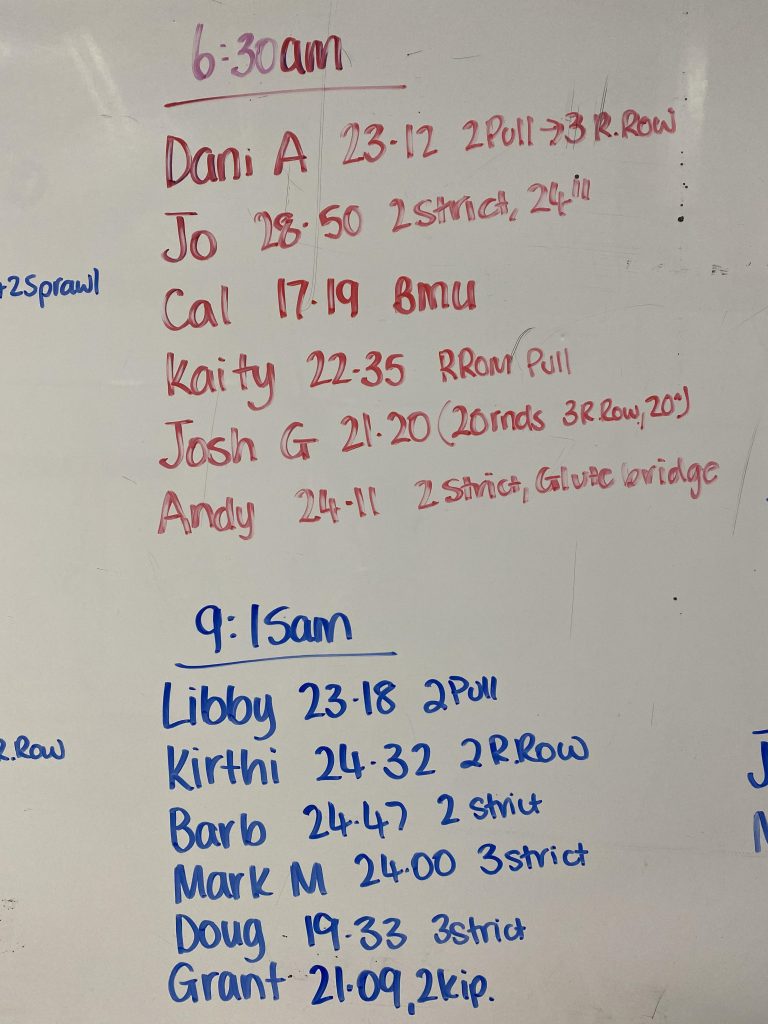 6:30am
Dani A 23.12 2Pull→3 R.Row
Jo 28.50 2strict, 24"
+2Sprawl
Cal 17.19 BMU
Kaity 22.35 RROM Pull
Josh G 21.20 (20rnds 3R.Row, 20")
Andy 24.11 2strict, Glute bridge
9:15am
Libby 23.18 2Pull
R.Row
Kirthi 24.32 2R.Row
Barb 24.47 2 strict
Mark M 24.00 3strict
Doug 19.33 3strict
Grant 21.09, 2kip.